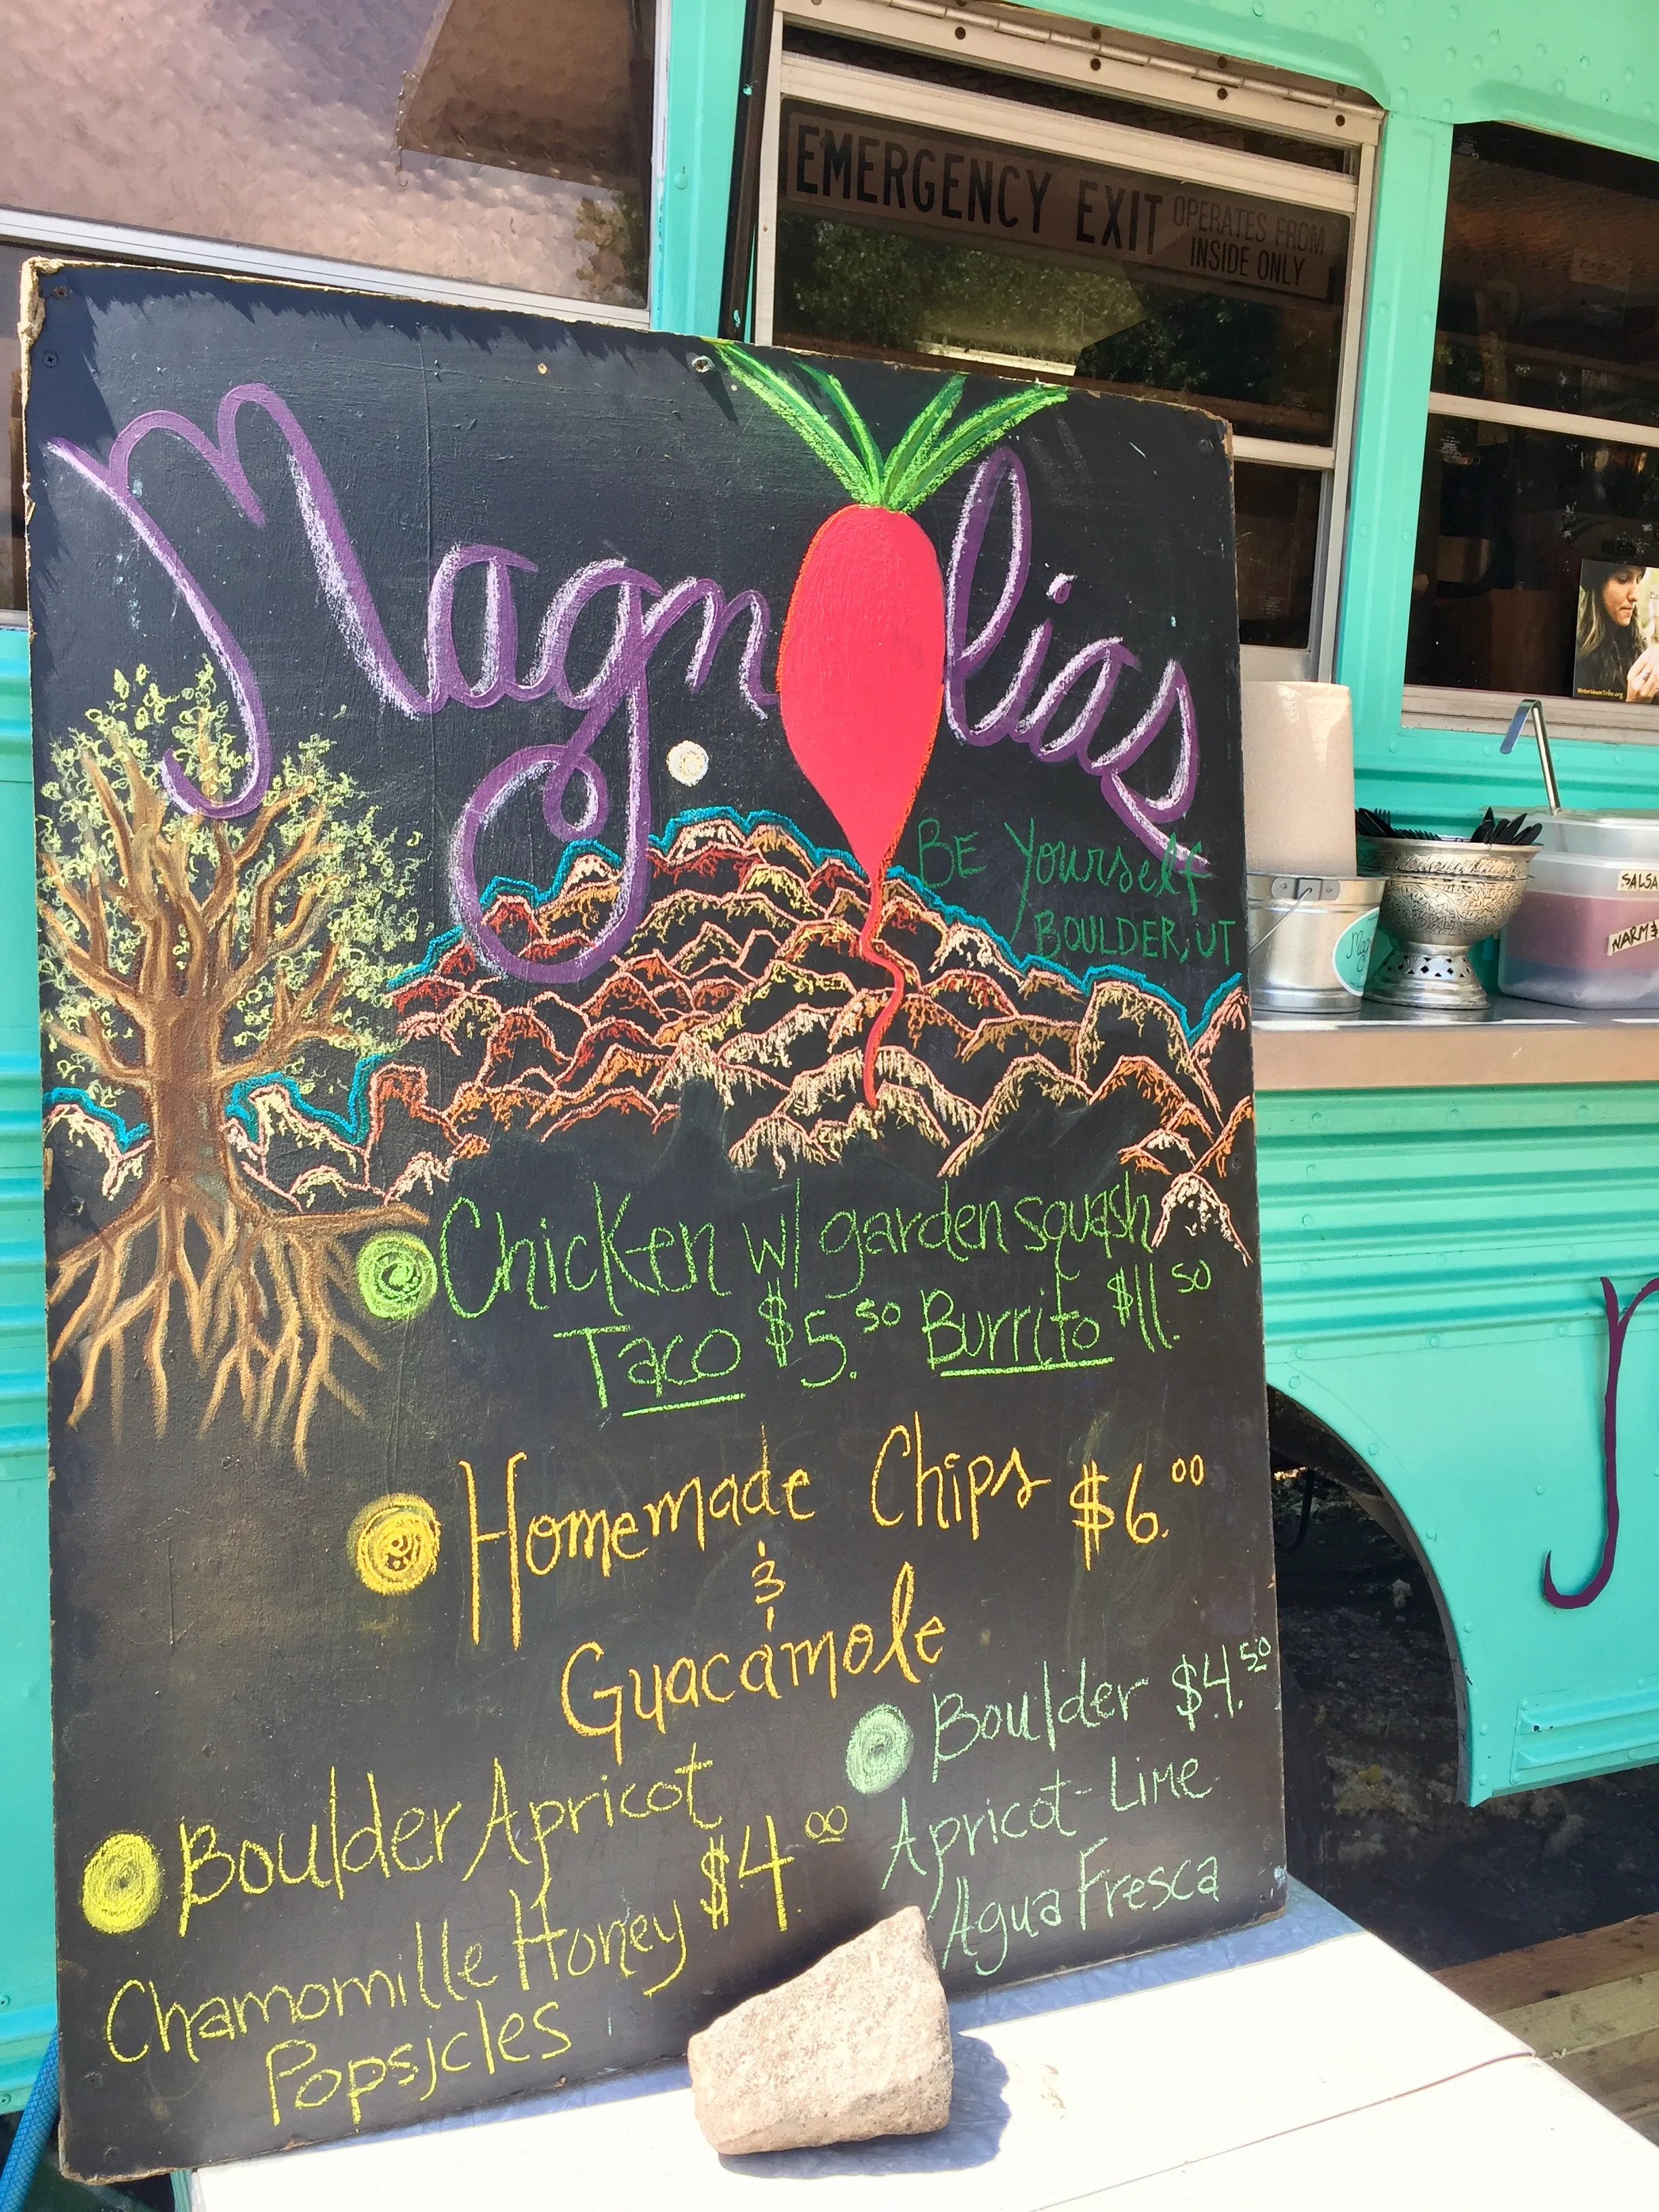 EMERGENCY EXIT OPERATES FROM
INSIDE ONLY
Magnolias
BE Yourself
BOULDER, UT
Chicken w/ garden squash
Taco $5.50 Burrito $11.50
Homemade Chips $6.00
&
Guacamole
Boulder Apricot
Chamomille Honey $4.00
Popsicles
Boulder $4.50
Apricot-Lime
Agua Fresca
SALSA
WARM &